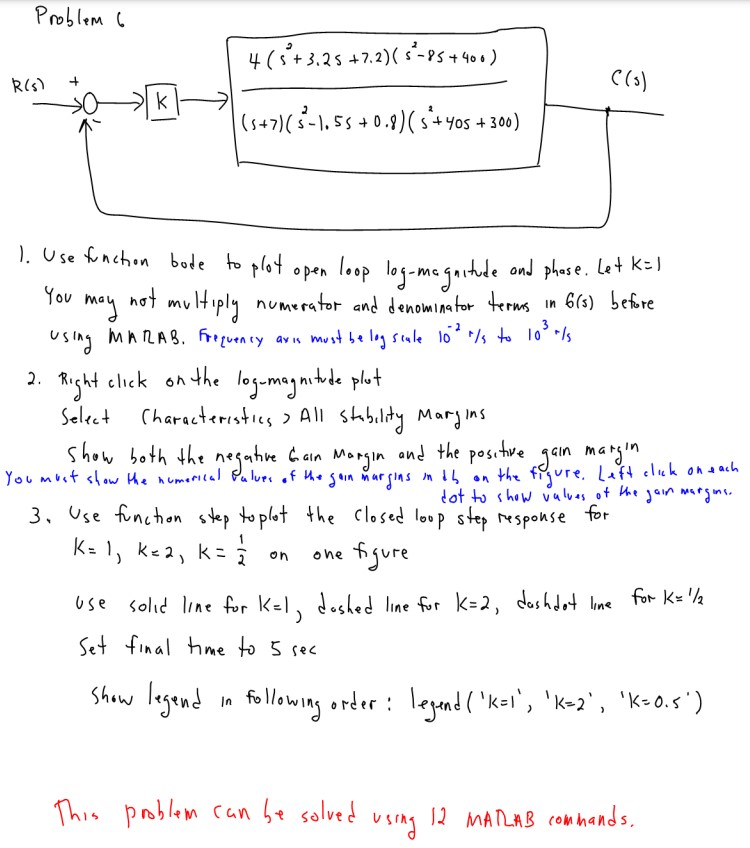 Problem 6
4 (s²+3.2s+7.2)(s²-8s+400)
R(s) + K C(s)
(s+7)(s²-1.5s+0.8)(s²+40s+300)
1. Use function bode to plot open loop log-magnitude and phase. Let K=1
You may not multiply numerator and denominator terms in G(s) before
using MATLAB. Frequency axis must be log scale 10⁻² r/s to 10³ r/s
2. Right click on the log-magnitude plot
Select Characteristics > All Stability Margins
Show both the negative Gain Margin and the positive gain margin
You must show the numerical values of the gain margins in db on the figure. Left click on each
dot to show values of the gain margins.
3. Use function step to plot the closed loop step response for
K=1, K=2, K=½ on one figure
use solid line for K=1, dashed line for K=2, dashdot line for K=1/2
Set final time to 5 sec
Show legend in following order: legend('K=1', 'K=2', 'K=0.5')
This problem can be solved using 12 MATLAB commands.